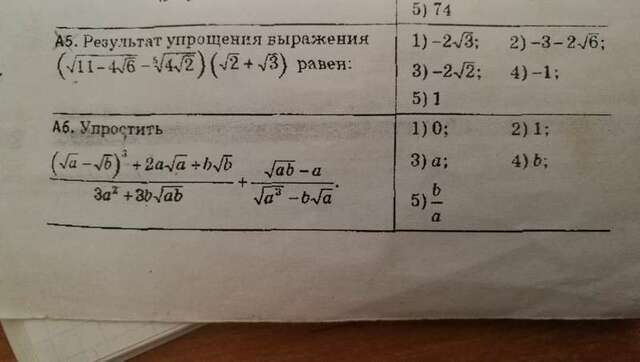 5) 74
А5. Результат упрощения выражения
(√11-4√6 - ⁵√4√2)(√2 + √3) равен:
1) -2√3; 2) -3-2√6;
3) -2√2; 4) -1;
5) 1
А6. Упростить
((√a - √b)³ + 2a√a + b√b)/(3a² + 3b√ab) + (√ab - a)/(√a³ - b√a).
1) 0; 2) 1;
3) a; 4) b;
5) b/a